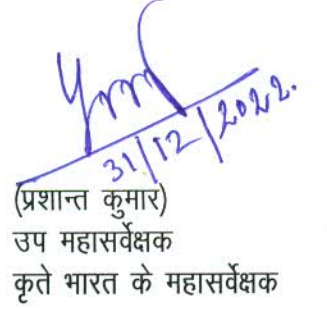 31/12/2022.
(प्रशान्त कुमार)
उप महासर्वेक्षक
कृते भारत के महासर्वेक्षक